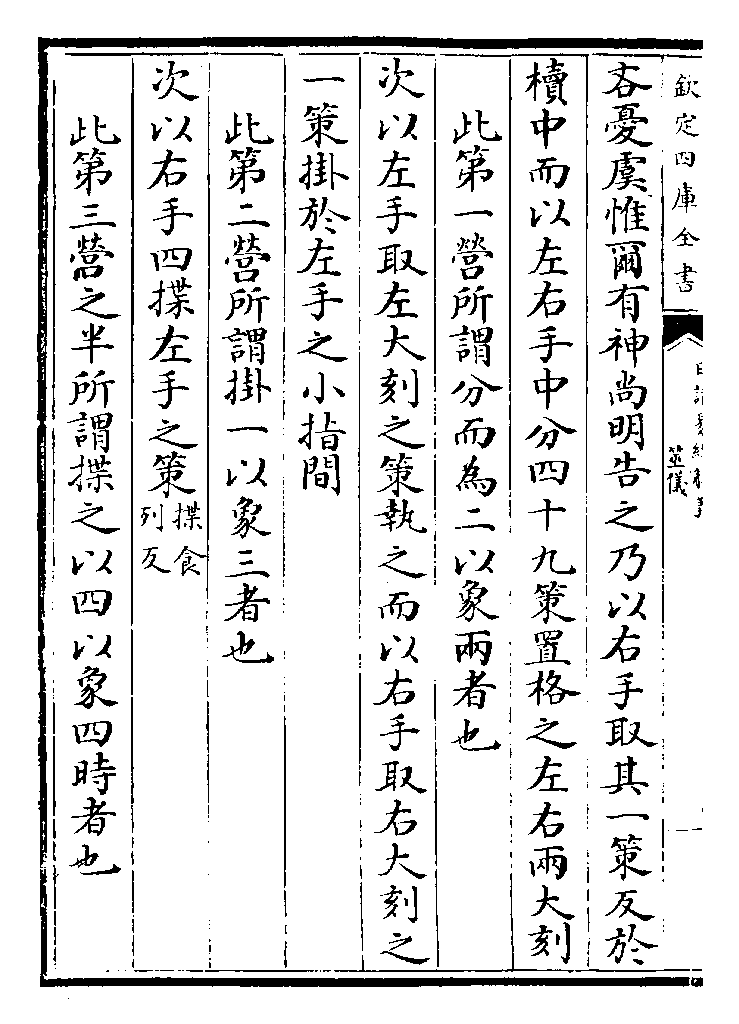 欽定四庫全書
日講易經解義
筮儀
吝憂虞惟爾有神尚明告之乃以右手取其一策反於
櫝中而以左右手中分四十九策置格之左右兩大刻
此第一營所謂分而為二以象兩者也
次以左手取左大刻之策執之而以右手取右大刻之
一策掛於左手之小指間
此第二營所謂掛一以象三者也
次以右手四揲左手之策揲食列反
此第三營之半所謂揲之以四以象四時者也